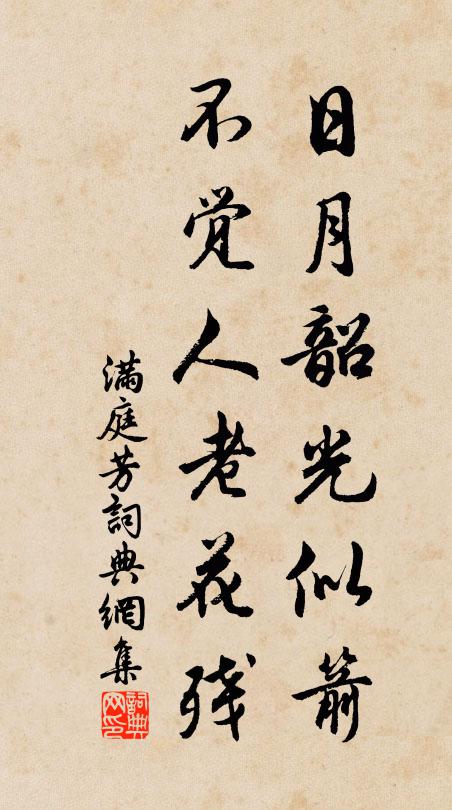 日月韶光似箭
不觉人老花残
满庭芳詞典網集
詞典网印